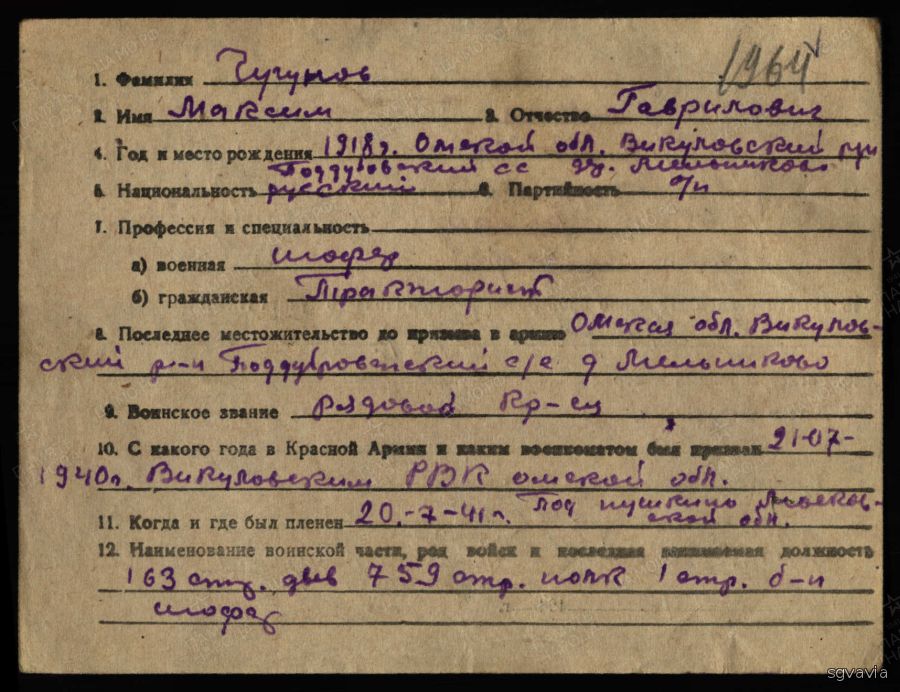 1964
1. Фамилия Чугунов
2. Имя Максим 3. Отчество Гаврилович
4. Год и место рождения 1918 г. Омской обл. Викуловский р-н
Поддубровский сс д. Мельниково
5. Национальность русский 6. Партийность б/п
7. Профессия и специальность
а) военная шофер
б) гражданская Тракторист
8. Последнее местожительство до призыва в армию Омская обл. Викулов-
ский р-н Поддубровенский с/с д Мельниково
9. Воинское звание рядовой кр-ец
10. С какого года в Красной Армии и каким военкоматом был призван 21-07-
1940 г. Викуловским РВК омской обл.
11. Когда и где был пленен 20.-7-41 г. Под пушкино Москов-
ской обл.
12. Наименование воинской части, род войск и последняя занимаемая должность
163 стр. див 759 стр. полк 1 стр. б-н
шофер
sgvavia